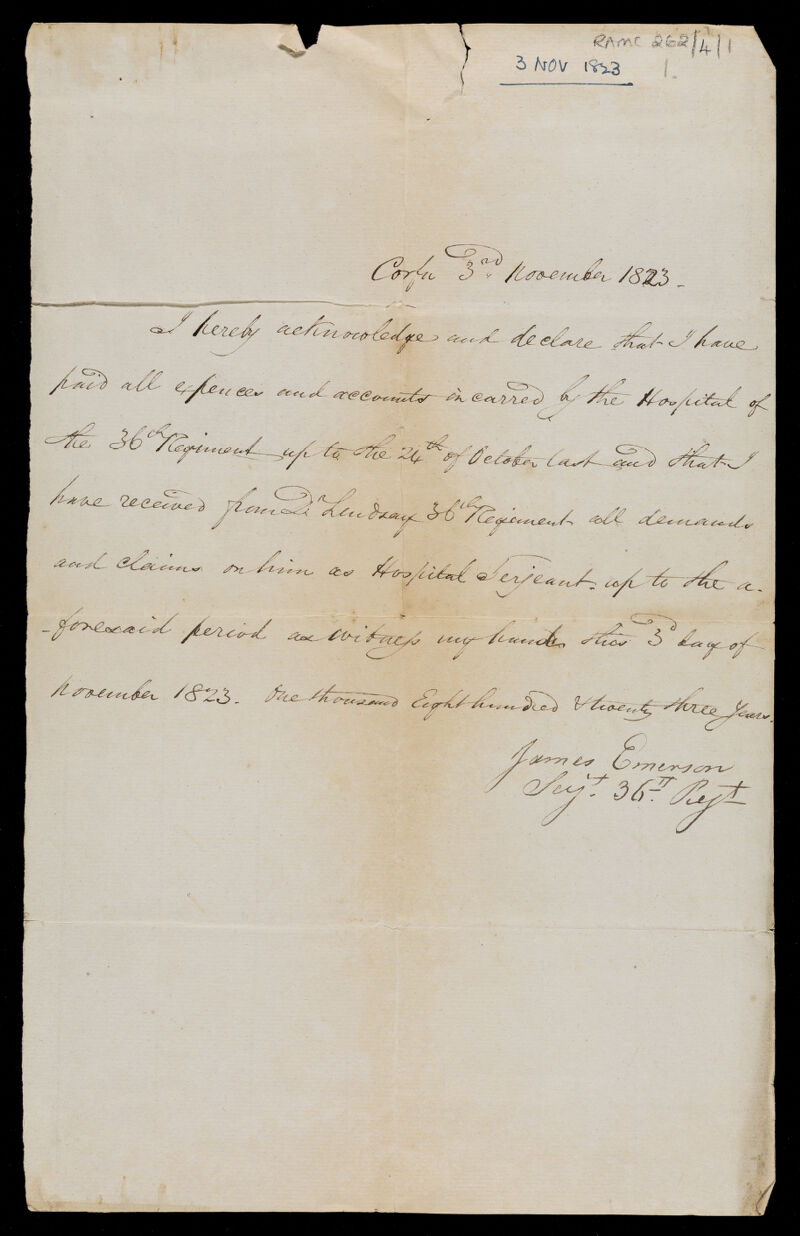 RAMC 262/4/1
3 NOV 1823 1.
Corfu 3rd November 1823.
I hereby acknowledge and declare that I have
paid all expences and accounts incarred by the Hospital of
the 36th Regiment up to the 24th of October last and that I
have received from Dr Lindsay 36th Regiment all demands
and claims on him as Hospital Serjeant up to the a-
-foresaid period as witness my hand this 3d day of
November 1823. One thousand Eight hundred & twenty three Years.
James Emerson
Serjt. 36th Regt